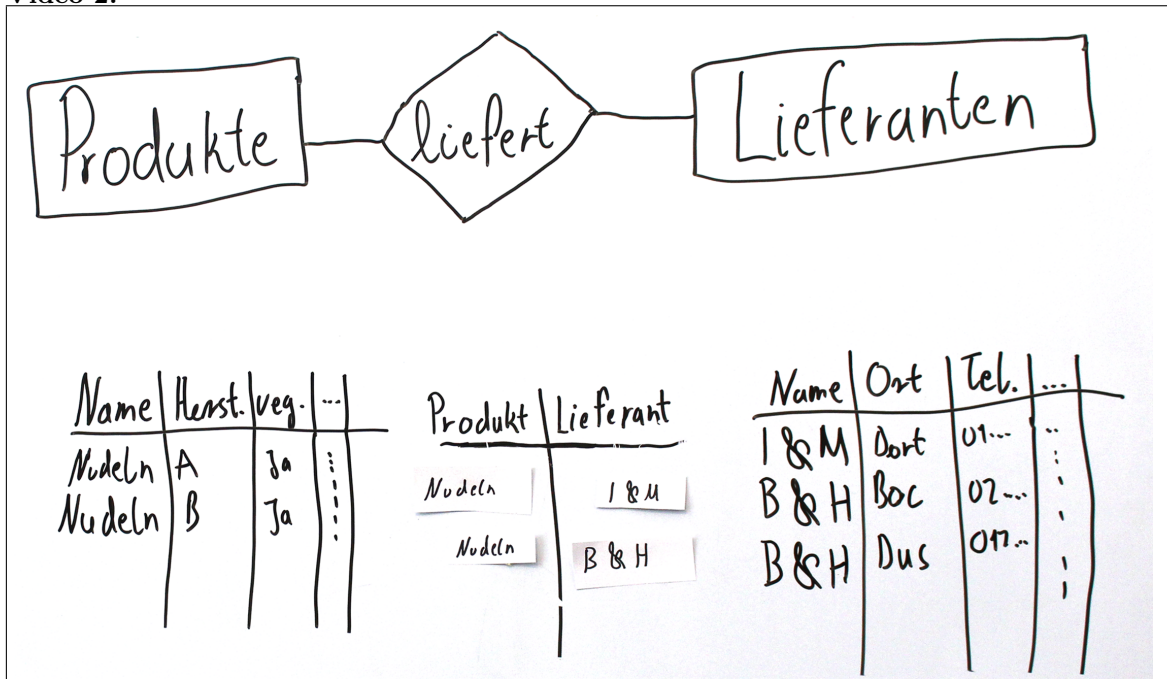 Video 2:
Produkte liefert Lieferanten
Name Herst. veg. ...
Nudeln A Ja
Nudeln B Ja
Produkt Lieferant
Nudeln I & M
Nudeln B & H
Name Ort Tel. ...
I & M Dort 01... ..
B & H Boc 02...
B & H Dus 017..